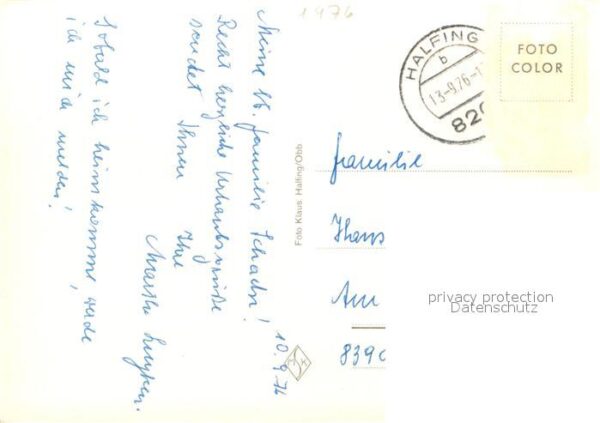 1976
Meine lb. Familie Schader!
Recht herzliche Urlaubsgrüße
sendet Ihnen
Ihre
Martha
10.9.76
Sobald ich heimkomme, werde
ich mich melden!
Foto Klaus Halfing/Obb
HALFING
b
13-9.76-1
820
FOTO
COLOR
Familie
Hans
Am
8390
privacy protection
Datenschutz